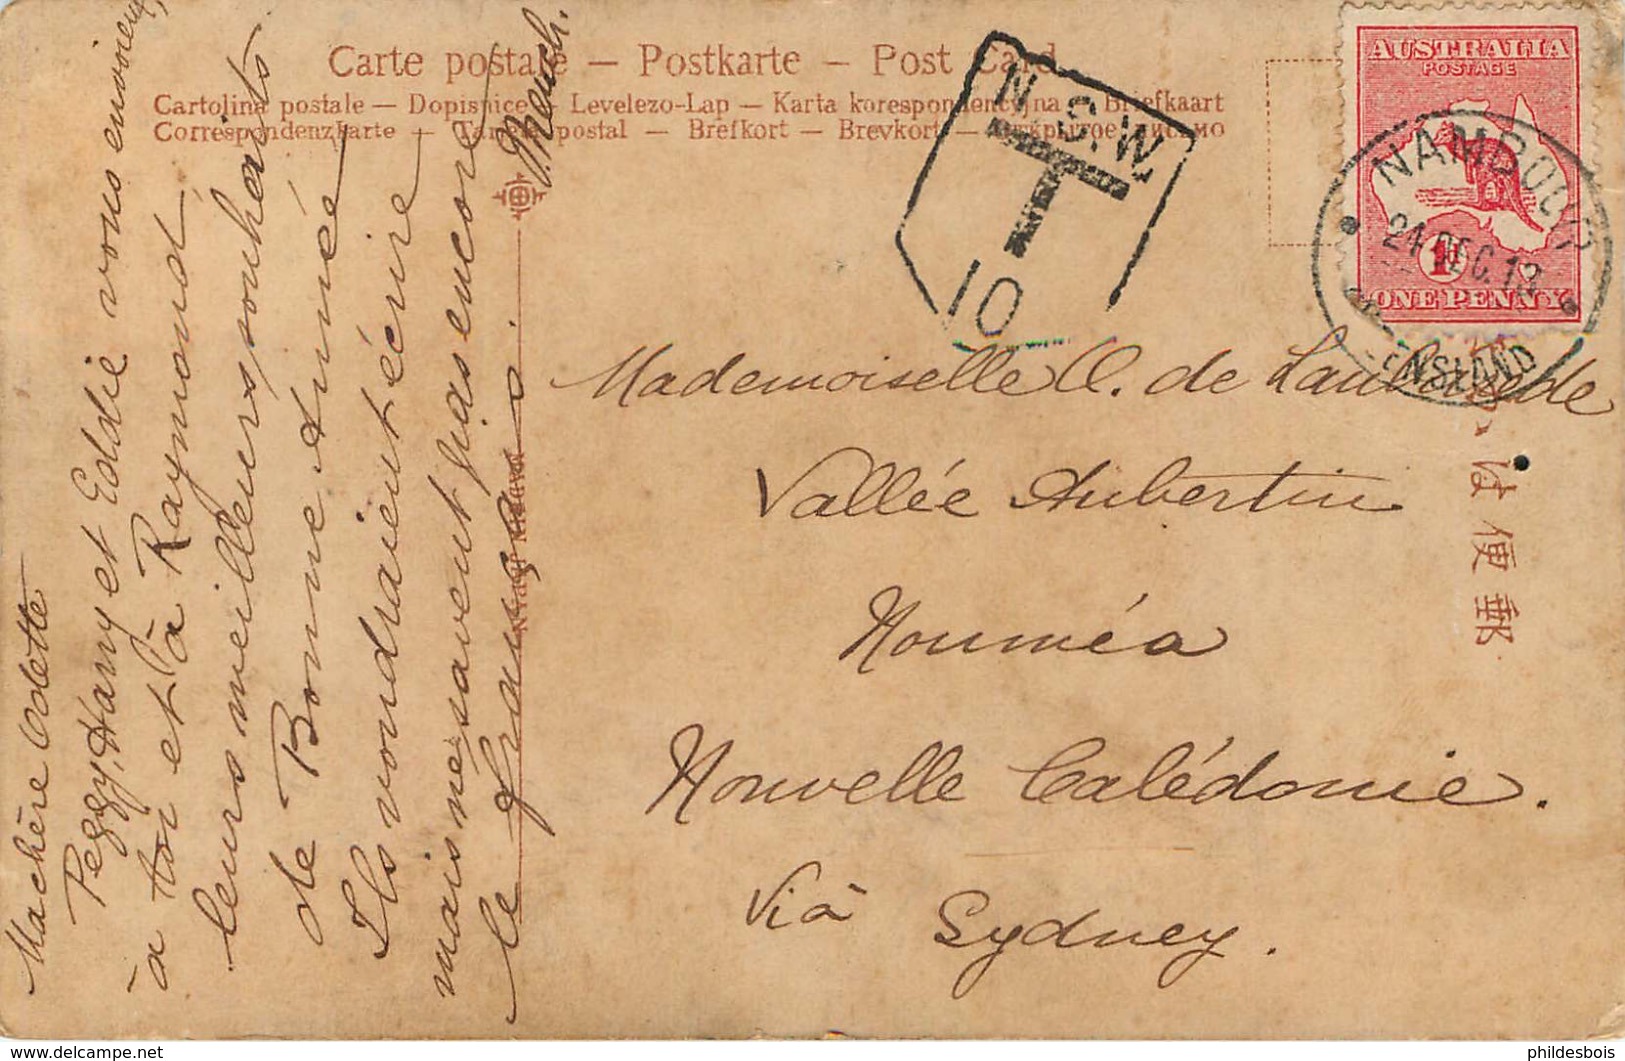 Carte postale — Postkarte — Post Card
Cartolina postale — Dopisnice — Levelezo-Lap — Karta korespondencyjna — Briefkaart
Correspondenzkarte — postal — Brefkort — Brevkort — Открытое письмо
N.S.W.
T
10
AUSTRALIA
POSTAGE
1D
ONE PENNY
NAMBOUR
24 DEC. 13
ENSLAND
Mademoiselle O. de
Vallée Aubertin
Nouméa
Nouvelle Calédonie.
Viâ Sydney.
Ma chère Odette
Peggy, Harry et Eddie vous envoient,
à toi et à Raymond
leurs meilleurs souhaits
de Bonne Année
Ils voudraient écrire
mais ne savent pas encore
le français.
郵
便
は